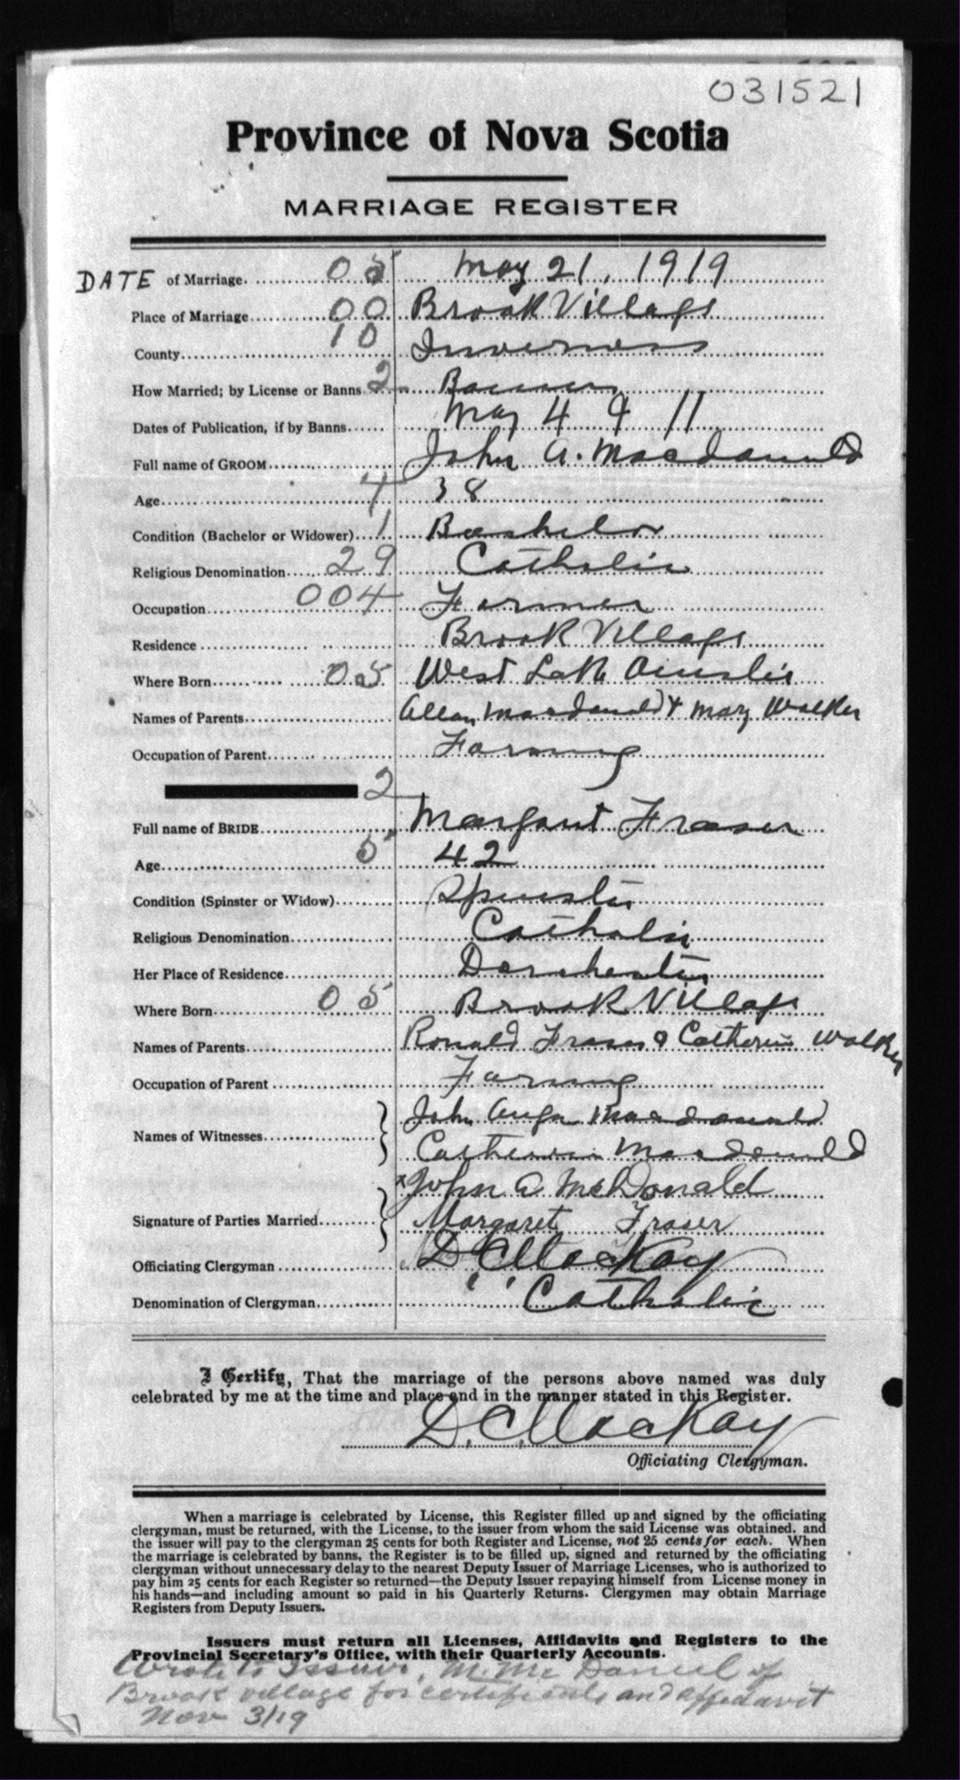 031521
Province of Nova Scotia
MARRIAGE REGISTER
DATE of Marriage 05 May 21, 1919
Place of Marriage 00 Brook Village
County 10 Inverness
How Married; by License or Banns 2 Banns
Dates of Publication, if by Banns May 4 & 11
Full name of GROOM John A. Macdonald
Age 4 38
Condition (Bachelor or Widower) 1 Bachelor
Religious Denomination 29 Catholic
Occupation 004 Farmer
Residence Brook Village
Where Born 05 West Lake Ainslie
Names of Parents Allan Macdonald & Mary Walker
Occupation of Parent Farming
2
Full name of BRIDE Margaret Fraser
Age 5 42
Condition (Spinster or Widow) Spinster
Religious Denomination Catholic
Her Place of Residence Dorchester
Where Born 05 Brook Village
Names of Parents Ronald Fraser & Catherine Walker
Occupation of Parent Farming
Names of Witnesses John Angus Macdonald
Catherine Macdonald
x John A McDonald
Signature of Parties Married Margaret Fraser
Officiating Clergyman D C MacKay
Denomination of Clergyman Catholic
I Certify, That the marriage of the persons above named was duly
celebrated by me at the time and place and in the manner stated in this Register.
D. C. MacKay
Officiating Clergyman.
When a marriage is celebrated by License, this Register filled up and signed by the officiating
clergyman, must be returned, with the License, to the issuer from whom the said License was obtained. and
the issuer will pay to the clergyman 25 cents for both Register and License, not 25 cents for each. When
the marriage is celebrated by banns, the Register is to be filled up, signed and returned by the officiating
clergyman without unnecessary delay to the nearest Deputy Issuer of Marriage Licenses, who is authorized to
pay him 25 cents for each Register so returned—the Deputy Issuer repaying himself from License money in
his hands—and including amount so paid in his Quarterly Returns. Clergymen may obtain Marriage
Registers from Deputy Issuers.
Issuers must return all Licenses, Affidavits and Registers to the
Provincial Secretary's Office, with their Quarterly Accounts.
Wrote to Issuer, M. Mc Daniel of
Brook village for certificate and affidavit
Nov 3/19